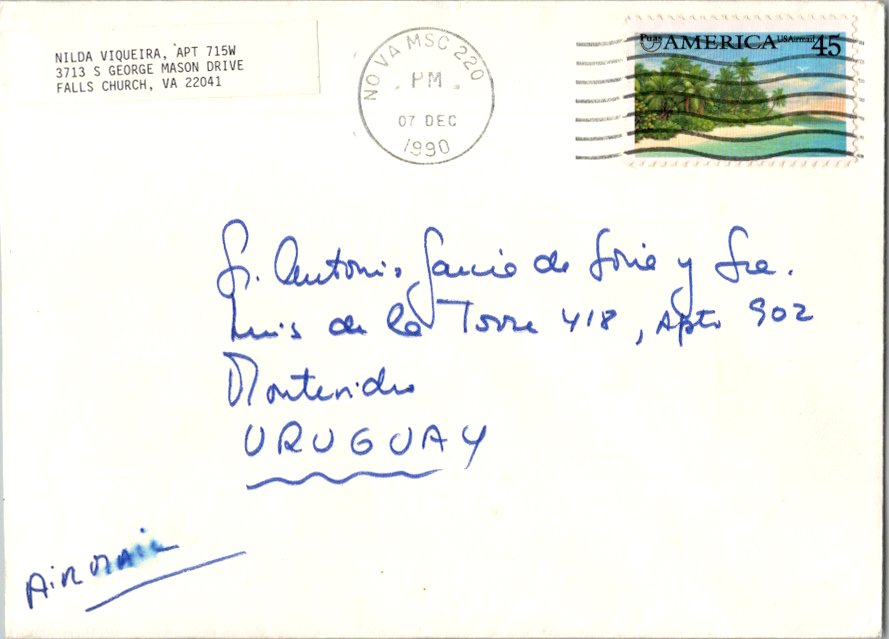 NILDA VIQUEIRA, APT 715W
3713 S GEORGE MASON DRIVE
FALLS CHURCH, VA 22041
NO VA MSC 220
PM
07 DEC
1990
Puas AMERICA USAirmail 45
Sr. Antonio Garcia de Soria y Sra.
Luis de la Torre 418, Apto 902
Montevideo
URUGUAY
AIR MAIL